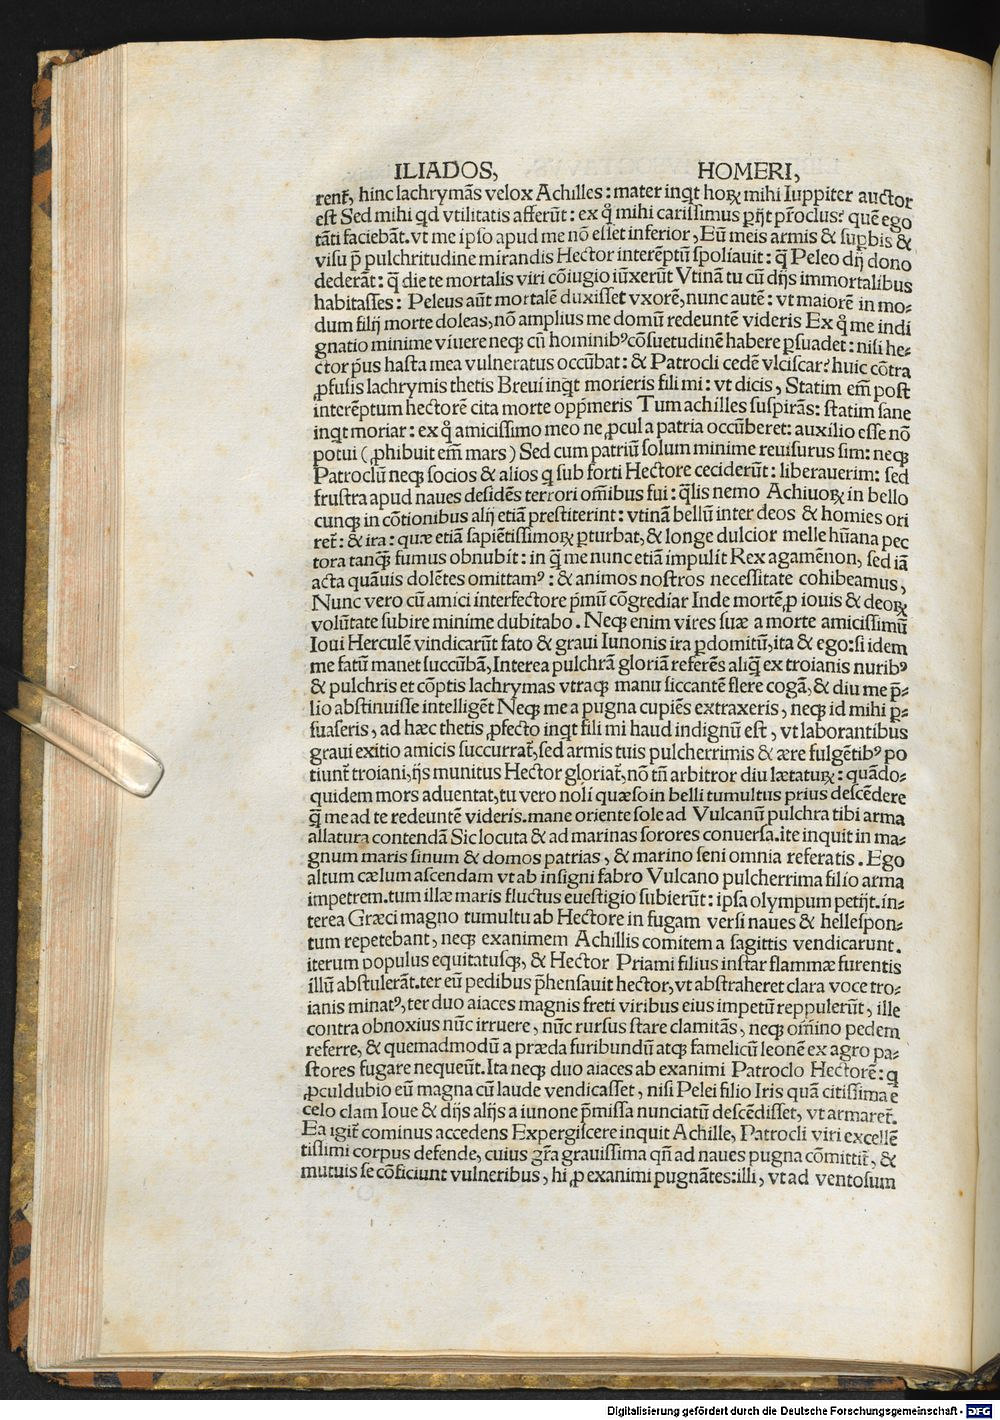 ILIADOS, HOMERI,
rent᷑, hinc lachrymãs velox Achilles: mater inqt hoꝝ mihi Iuppiter auctor
est Sed mihi qd vtilitatis afferũt: ex q̊ mihi carissimus ꝑijt pr̃oclus? quẽ ego
tãti faciebãt. vt me ipso apud me nõ esset inferior, Eũ meis armis & suꝑbis &
visu p̃ pulchritudine mirandis Hector interẽptũ spoliauit: q̃ Peleo dij dono
dederãt: q̃ die te mortalis viri cõiugio iũxerũt Vtinã tu cũ dijs immortalibus
habitasses: Peleus aũt mortalẽ duxisset vxorẽ, nunc autẽ: vt maiorẽ in mo-
dum filij morte doleas, nõ amplius me domũ redeuntẽ videris Ex q̊ me indi
gnatio minime viuere neqꝫ cũ hominibꝰ cõsuetudinẽ habere ꝑsuadet: nisi he-
ctor p̃us hasta mea vulneratus occũbat: & Patrocli cedẽ vlciscar? huic cõtra
ꝓfusis lachrymis thetis Breui inq̃t morieris fili mi: vt dicis, Statim em̃ post
interẽptum hectorẽ cita morte opp̃meris Tum achilles suspirãs: statim sane
inqt moriar: ex q̊ amicissimo meo ne ꝓcul a patria occũberet: auxilio esse nõ
potui (ꝓhibuit em̃ mars) Sed cum patriũ solum minime reuisurus sim: neqꝫ
Patroclũ neqꝫ socios & alios q sub forti Hectore ceciderũt: liberauerim: sed
frustra apud naues desidẽs terrori om̃ibus fui: q̃lis nemo Achiuoꝝ in bello
cunqꝫ in cõtionibus alij etiã prestiterint: vtinã bellũ inter deos & homies ori
ret᷑: & ira: quæ etiã sapiẽtissimoꝝ ꝑturbat, & longe dulcior melle hũana pec
tora tanqꝫ̃ fumus obnubit: in q̃ me nunc etiã impulit Rex agamẽnon, sed iã
acta quãuis dolẽtes omittamꝰ: & animos nostros necessitate cohibeamus,
Nunc vero cũ amici interfectore p̃mũ cõgrediar Inde mortẽ ꝓ iouis & deoꝝ
volũtate subire minime dubitabo. Neqꝫ enim vires suæ a morte amicissimũ
Ioui Herculẽ vindicarũt fato & graui Iunonis ira ꝑdomitũ, ita & ego: si idem
me fatũ manet succũbã, Interea pulchrã gloriã referẽs aliq̃ ex troianis nuribꝰ
& pulchris et cõptis lachrymas vtraqꝫ manu siccantẽ flere cogã, & diu me p̃-
lio abstinuisse intelligẽt Neqꝫ me a pugna cupiẽs extraxeris, neqꝫ id mihi ꝑ-
suaseris, ad hæc thetis ꝓfecto inqt fili mi haud indignũ est, vt laborantibus
graui exitio amicis succurrat᷑, sed armis tuis pulcherrimis & ære fulgẽtibꝰ po
tiunt᷑ troiani, ijs munitus Hector gloriat᷑, nõ tñ arbitror diu lætaturꝝ: quãdo-
quidem mors aduentat, tu vero noli quæso in belli tumultus prius descẽdere
q̃ me ad te redeuntẽ videris. mane oriente sole ad Vulcanũ pulchra tibi arma
allatura contendã Sic locuta & ad marinas sorores conuersa. ite inquit in ma-
gnum maris sinum & domos patrias, & marino seni omnia referatis. Ego
altum cælum ascendam vt ab insigni fabro Vulcano pulcherrima filio arma
impetrem. tum illæ maris fluctus euestigio subierũt: ipsa olympum petijt. in-
terea Græci magno tumultu ab Hectore in fugam versi naues & hellespon-
tum repetebant, neqꝫ exanimem Achillis comitem a sagittis vendicarunt.
iterum populus equitatusqꝫ, & Hector Priami filius instar flammæ furentis
illũ abstulerãt. ter eũ pedibus p̃hensauit hector, vt abstraheret clara voce tro-
ianis minatꝰ, ter duo aiaces magnis freti viribus eius impetũ reppulerũt, ille
contra obnoxius nũc irruere, nũc rursus stare clamitãs, neqꝫ om̃ino pedem
referre, & quemadmodũ a præda furibundũ atqꝫ famelicũ leonẽ ex agro pa-
stores fugare nequeũt. Ita neqꝫ duo aiaces ab exanimi Patroclo Hectorẽ: q
ꝓculdubio eũ magna cũ laude vendicasset, nisi Pelei filio Iris quã citissima ẽ
celo clam Ioue & dijs alijs a iunone p̃missa nunciatũ descẽdisset, vt armaret᷑.
Ea igit᷑ cominus accedens Expergiscere inquit Achille, Patrocli viri excellẽ
tissimi corpus defende, cuius gr̃a grauissima qñ ad naues pugna cõmittit᷑, &
mutuis se cõficiunt vulneribus, hi ꝓ exanimi pugnãtes: illi, vt ad ventosum
Digitalisierung gefördert durch die Deutsche Forschungsgemeinschaft - DFG